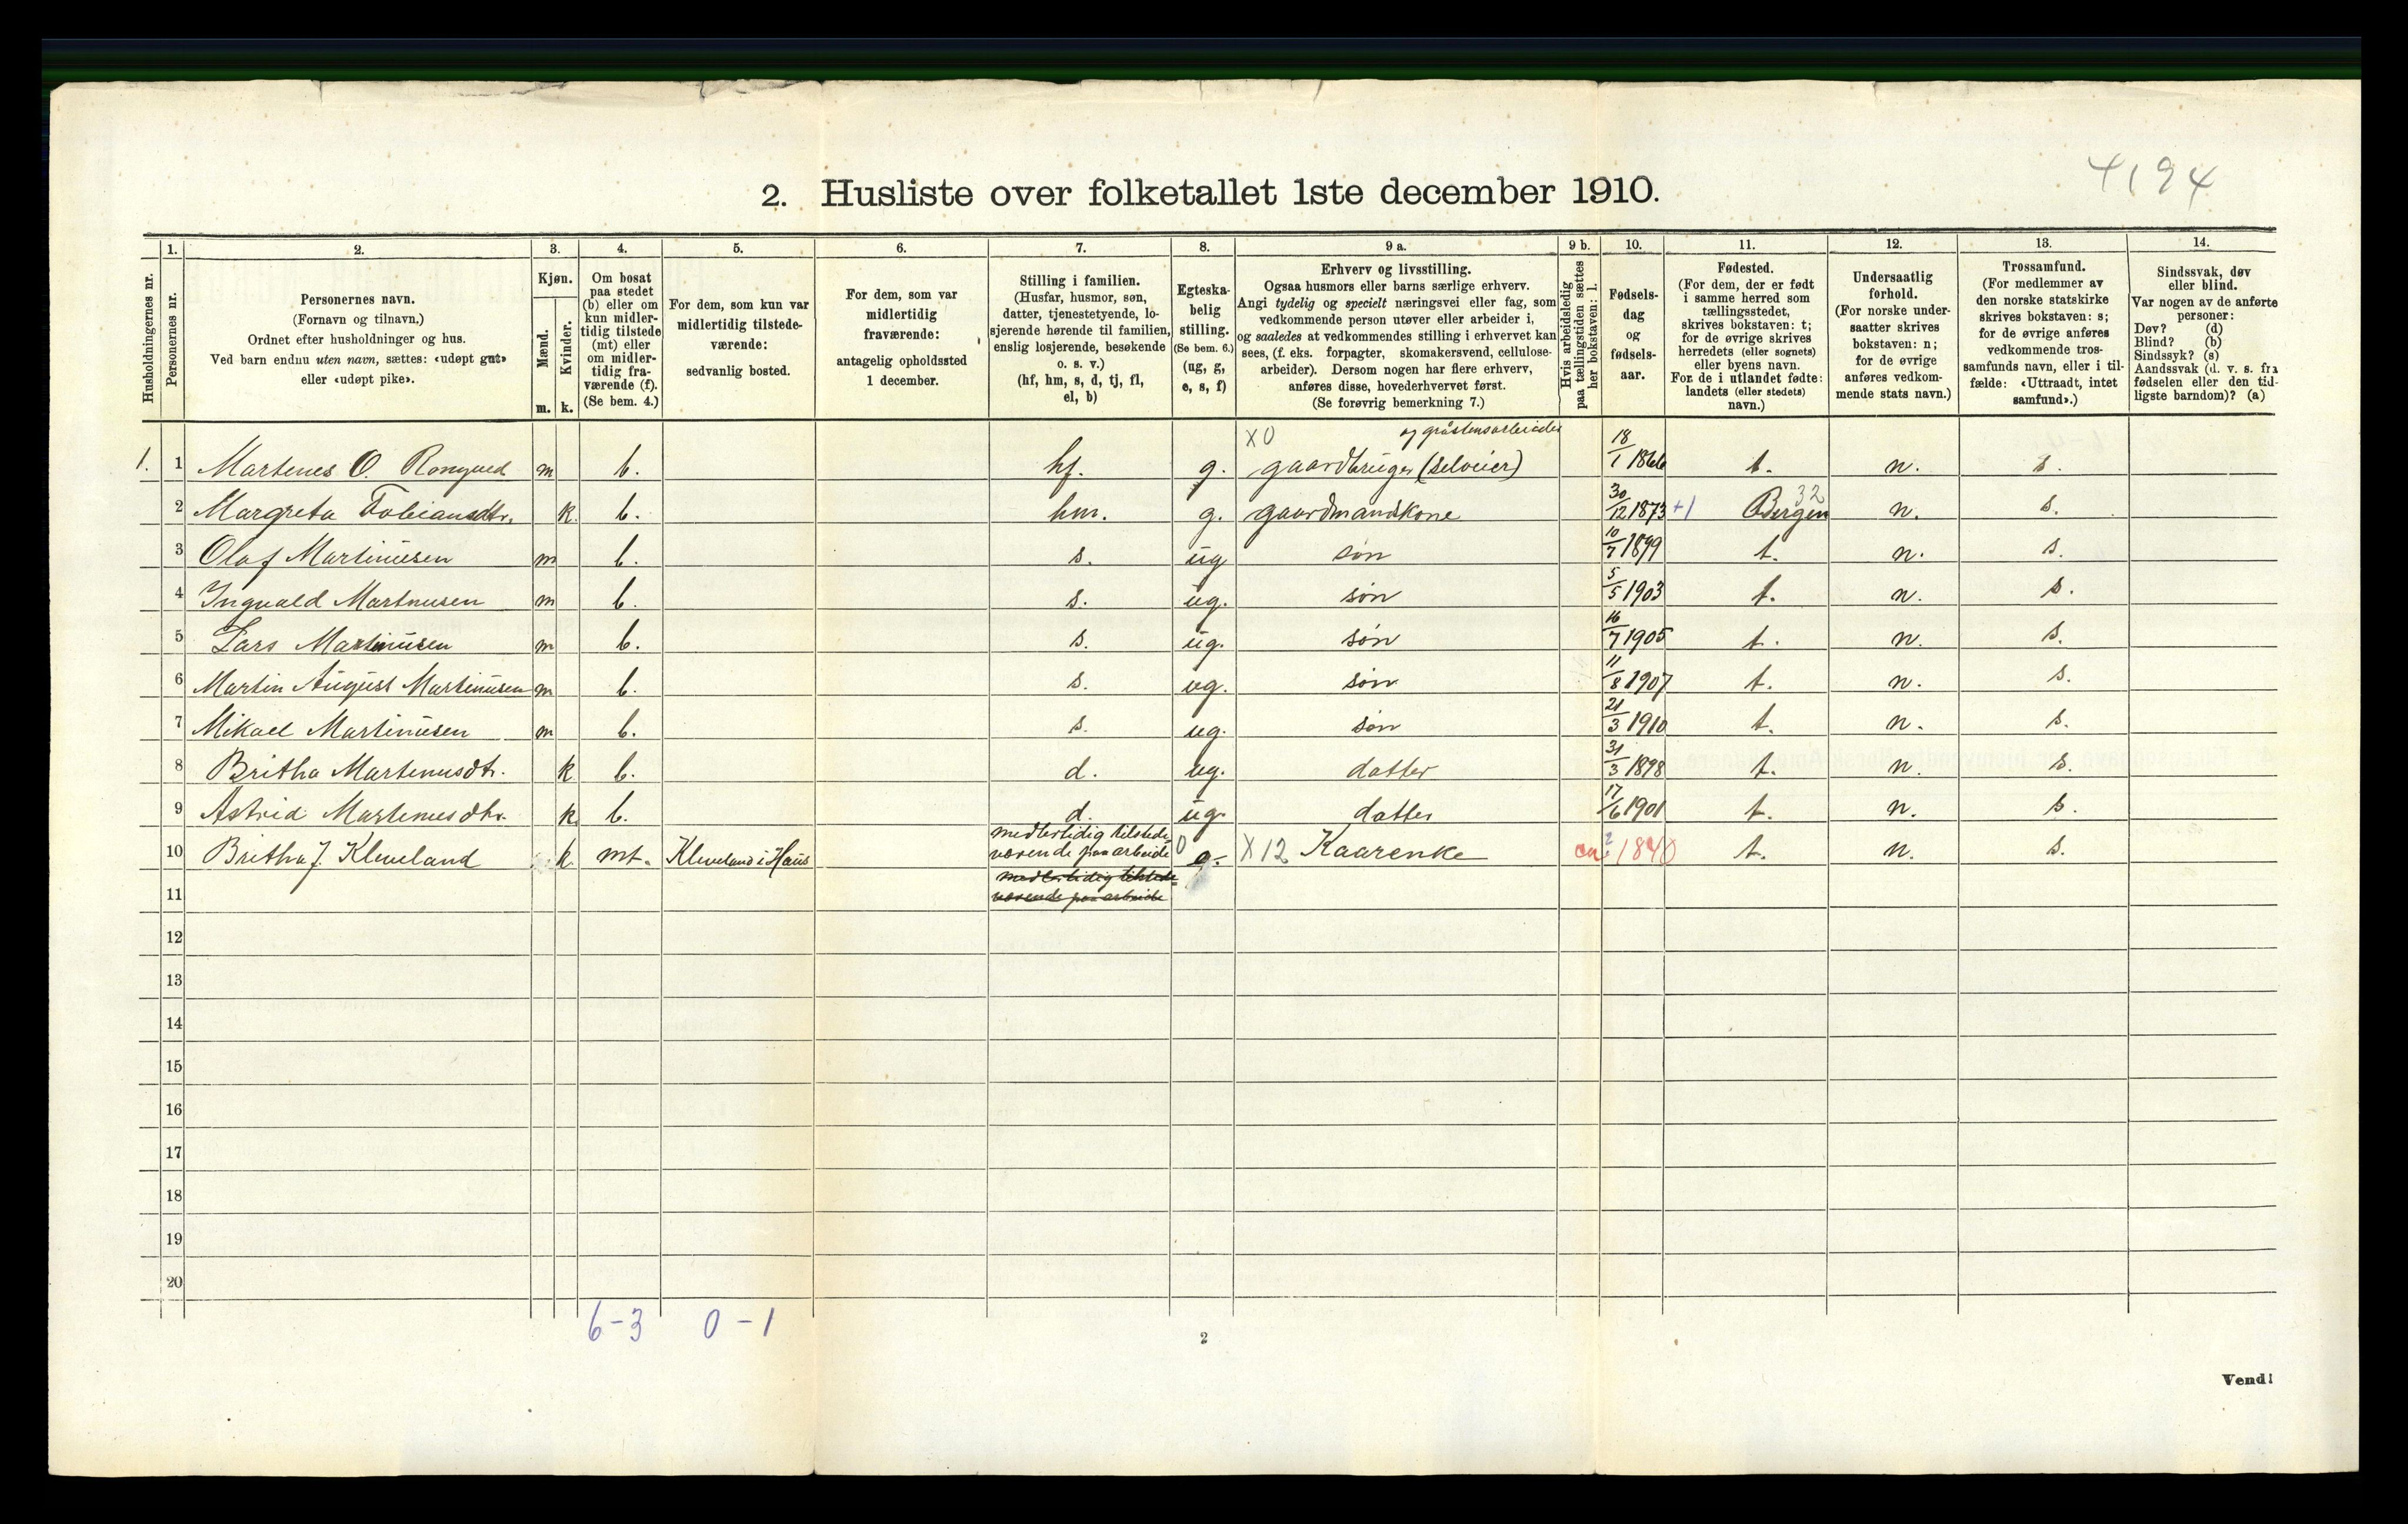 4194
2. Husliste over folketallet 1ste december 1910.
Husholdningernes nr.
1.
Personernes nr.
2.
Personernes navn.
(Fornavn og tilnavn.)
Ordnet efter husholdninger og hus.
Ved barn endnu uten navn, sættes: «udøpt gut»
eller «udøpt pike».
3.
Kjøn.
Mænd.
Kvinder.
m. k.
4.
Om bosat
paa stedet
(b) eller om
kun midler-
tidig tilstede
(mt) eller
om midler-
tidig fra-
værende (f).
(Se bem. 4.)
5.
For dem, som kun var
midlertidig tilstede-
værende:
sedvanlig bosted.
6.
For dem, som var
midlertidig
fraværende:
antagelig opholdssted
1 december.
7.
Stilling i familien.
(Husfar, husmor, søn,
datter, tjenestetyende, lo-
sjerende hørende til familien,
enslig losjerende, besøkende
o. s. v.)
(hf, hm, s, d, tj, fl,
el, b)
8.
Egteska-
belig
stilling.
(Se bem. 6.)
(ug, g,
e, s, f)
9 a.
Erhverv og livsstilling.
Ogsaa husmors eller barns særlige erhverv.
Angi tydelig og specielt næringsvei eller fag, som
vedkommende person utøver eller arbeider i,
og saaledes at vedkommendes stilling i erhvervet kan
sees, (f. eks. forpagter, skomakersvend, cellulose-
arbeider). Dersom nogen har flere erhverv,
anføres disse, hovederhvervet først.
(Se forøvrig bemerkning 7.)
9 b.
Hvis arbeidsledig
paa tællingstiden sættes
her bokstaven: l.
10.
Fødsels-
dag
og
fødsels-
aar.
11.
Fødested.
(For dem, der er født
i samme herred som
tællingsstedet,
skrives bokstaven: t;
for de øvrige skrives
herredets (eller sognets)
eller byens navn.
For de i utlandet fødte:
landets (eller stedets)
navn.)
12.
Undersaatlig
forhold.
(For norske under-
saatter skrives
bokstaven: n;
for de øvrige
anføres vedkom-
mende stats navn.)
13.
Trossamfund.
(For medlemmer av
den norske statskirke
skrives bokstaven: s;
for de øvrige anføres
vedkommende tros-
samfunds navn, eller i til-
fælde: «Uttraadt, intet
samfund».)
14.
Sindssvak, døv
eller blind.
Var nogen av de anførte
personer:
Døv? (d)
Blind? (b)
Sindssyk? (s)
Aandssvak (d. v. s. fra
fødselen eller den tid-
ligste barndom)? (a)
X0 og gråstensarbeider
1. 1 Martenes O. Rongved m b. hf. g. gaardbruger (selveier) 18/1 1866 t. n. s.
2 Margreta Tobiansdtr. k. b. hm. g. gaardmandskone 30/12 1873 +1 Bergen 32 n. s.
3 Olaf Martinusen m b. s. ug søn 10/7 1899 t. n. s.
4 Ingvald Martnusen m b. s. ug. søn 5/5 1903 t. n. s.
5 Lars Martinusen m b. s. ug. søn 16/7 1905 t. n. s.
6 Martin August Martinusen m b. s. ug. søn 11/8 1907 t. n. s.
7 Mikael Martinusen m b. s. ug. søn 21/3 1910 t. n. s.
8 Britha Martenusdtr. k b. d. ug. datter 31/3 1898 t. n. s.
9 Astrid Martenusdtr. k. b. d. ug. datter 17/6 1901 t. n. s.
10 Britha J. Kleveland k mt. Kleveland i Haus medlertidig tilstede værende paa arbeide 0 g. X 12 Kaarenke ca 1840 t. n. s.
11 medlertidig tilstede=
værende paa arbeide
12
13
14
15
16
17
18
19
20
6-3 0-1
2
Vend!